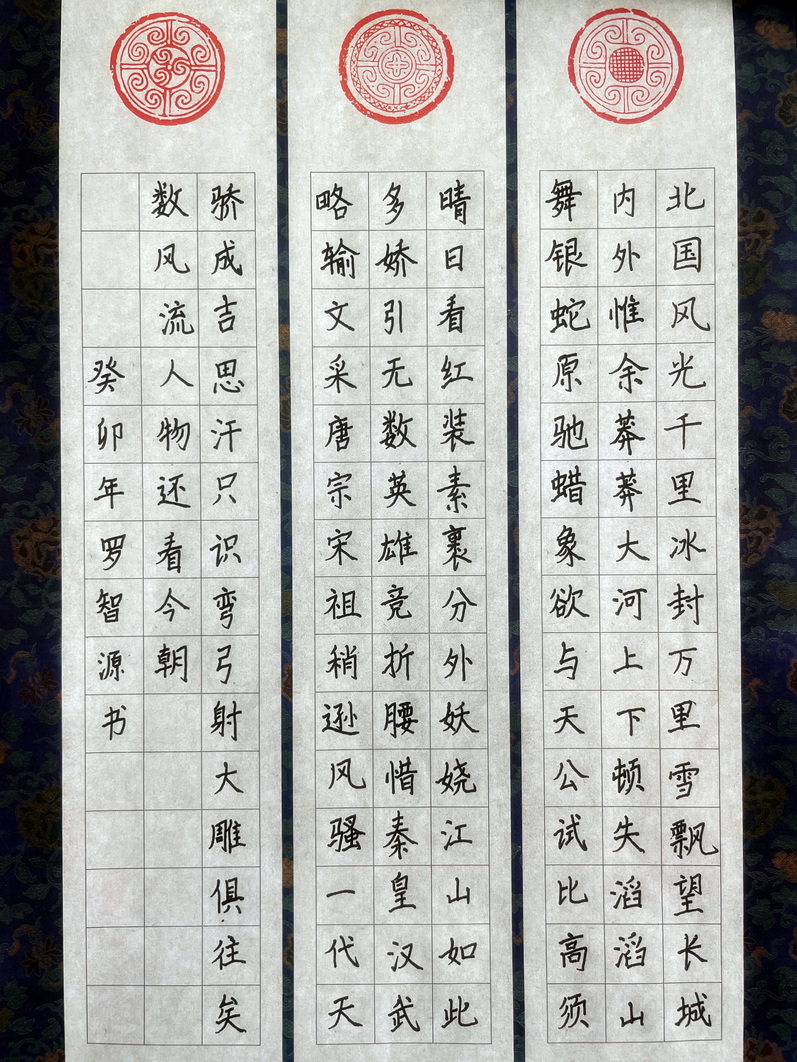 北国风光千里冰封万里雪飘望长城
内外惟余莽莽大河上下顿失滔滔山
舞银蛇原驰蜡象欲与天公试比高须
晴日看红装素裹分外妖娆江山如此
多娇引无数英雄竞折腰惜秦皇汉武
略输文采唐宗宋祖稍逊风骚一代天
骄成吉思汗只识弯弓射大雕俱往矣
数风流人物还看今朝
癸卯年罗智源书